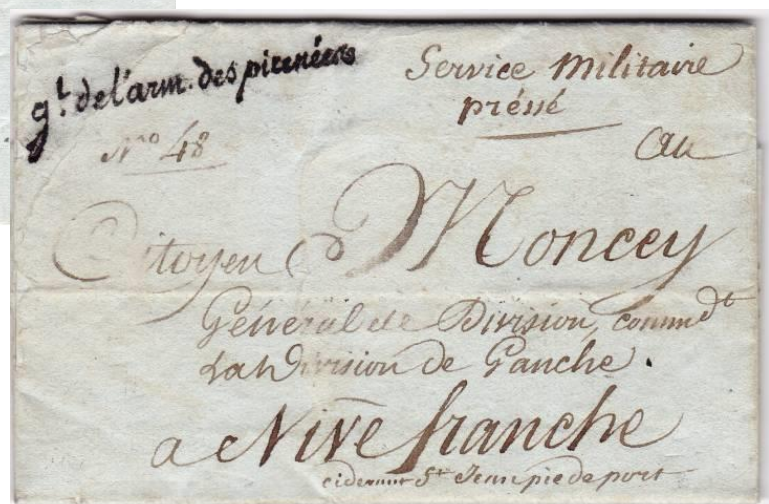 g.t de l'arm. des pirenées
Service Militaire
préssé
N.o 48
Au
Citoyen Moncey
Général de Division, comm.dt
La Division de Gauche.
a Nive franche
cidevant St Jean pie de port